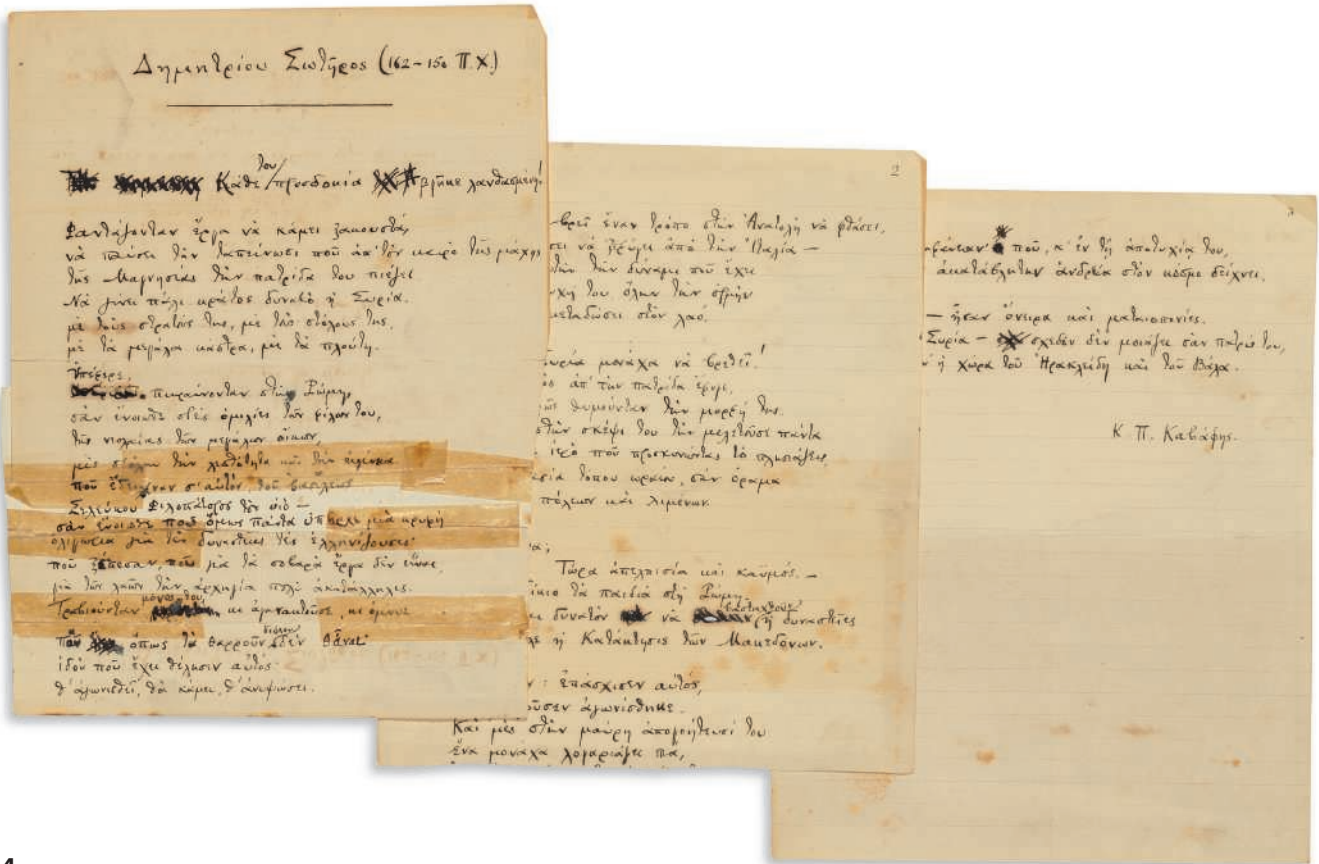 Δημητρίου Σωτῆρος (162-150 Π.Χ.)
Κάθε του προσδοκία βγῆκε λανθασμένη!
Φαντάζονταν ἔργα νὰ κάμει ξακουστά,
νὰ παύσει τὴν ταπείνωσι ποὺ ἀπ' τὸν καιρὸ τῆς μάχης
τῆς Μαγνησίας τὴν πατρίδα του πιέζει
Νὰ γίνει πάλι κράτος δυνατὸ ἡ Συρία.
μὲ τοὺς στρατούς της, μὲ τοὺς στόλους της,
μὲ τὰ μεγάλα κάστρα, μὲ τὰ πλούτη.
ὑπέφερε, πικραίνονταν στὴν Ρώμη
σὰν ἔνοιωθε στὲς ὁμιλίες τῶν φίλων του,
τῆς νεολαίας τῶν μεγάλων οἴκων,
μὲς σ' ὅλην τὴν λεπτότητα καὶ τὴν εὐγένεια
ποὺ ἔδειχναν σ' αὐτόν, τοῦ βασιλέως
Σελεύκου Φιλοπάτορος τὸν υἱὸ —
σὰν ἔνοιωθε ποὺ ὅμως πάντα ὑπῆρχε μιὰ κρυφὴ
ὀλιγωρία γιὰ τὲς δυναστεῖες τὲς ἑλληνίζουσες·
ποὺ ξέπεσαν, ποὺ γιὰ τὰ σοβαρὰ ἔργα δὲν εἶναι,
γιὰ τῶν λαῶν τὴν ἀρχηγία πολὺ ἀκατάλληλες.
Τραβιούνταν μόνος του, κι ἀγανακτοῦσε, κι ὄμνυε
ποὺ ὅπως τὰ θαρροῦν διόλου δὲν θἆναι·
ἰδοὺ ποὺ ἔχει θέλησιν αὐτός·
θ' ἀγωνισθεῖ, θὰ κάμει, θ' ἀνυψώσει.
2
βρεῖ ἕναν τρόπο στὴν Ἀνατολὴ νὰ φθάσει,
σει νὰ ξεφύγει ἀπὸ τὴν Ἰταλία —
τὴν τὴν δύναμι ποὺ ἔχει
υχή του, ὅλην τὴν ὁρμὴν
μεταδώσει στὸν λαό.
υρία μονάχα νὰ βρεθεῖ!
ἀπ' τὴν πατρίδα ἔφυγε,
θυμούνταν τὴν μορφή της.
στὴν σκέψι του τὴν μελετοῦσε πάντα
ἱερὸ ποὺ προσκυνῶντας τὸ πλησιάζεις,
σία τόπου ὡραίου, σὰν ὅραμα
πόλεων καὶ λιμένων.
α;
Τώρα ἀπελπισία καὶ καϋμός. —
ίκιο τὰ παιδιὰ στὴ Ρώμη.
δυνατὸν νὰ βασταχθοῦν ἡ δυναστεῖες
ἡ Κατάκτησις τῶν Μακεδόνων.
ν: ἐπάσχισεν αὐτός,
οῦσεν ἀγωνίσθηκε.
Καὶ μὲς στὴν μαύρη ἀπογοήτευσί του
ἕνα μονάχα λογαριάζει πιά,
3
ποὺ, κ' ἐν τῇ ἀποτυχίᾳ του,
ἀκατάβλητην ἀνδρεία στὸν κόσμο δείχνει.
— ἦσαν ὄνειρα καὶ ματαιοπονίες.
Συρία — σχεδὸν δὲν μοιάζει σὰν πατρίς του,
ἡ χώρα τοῦ Ἡρακλείδη καὶ τοῦ Βάλα.
Κ. Π. Καβάφης.